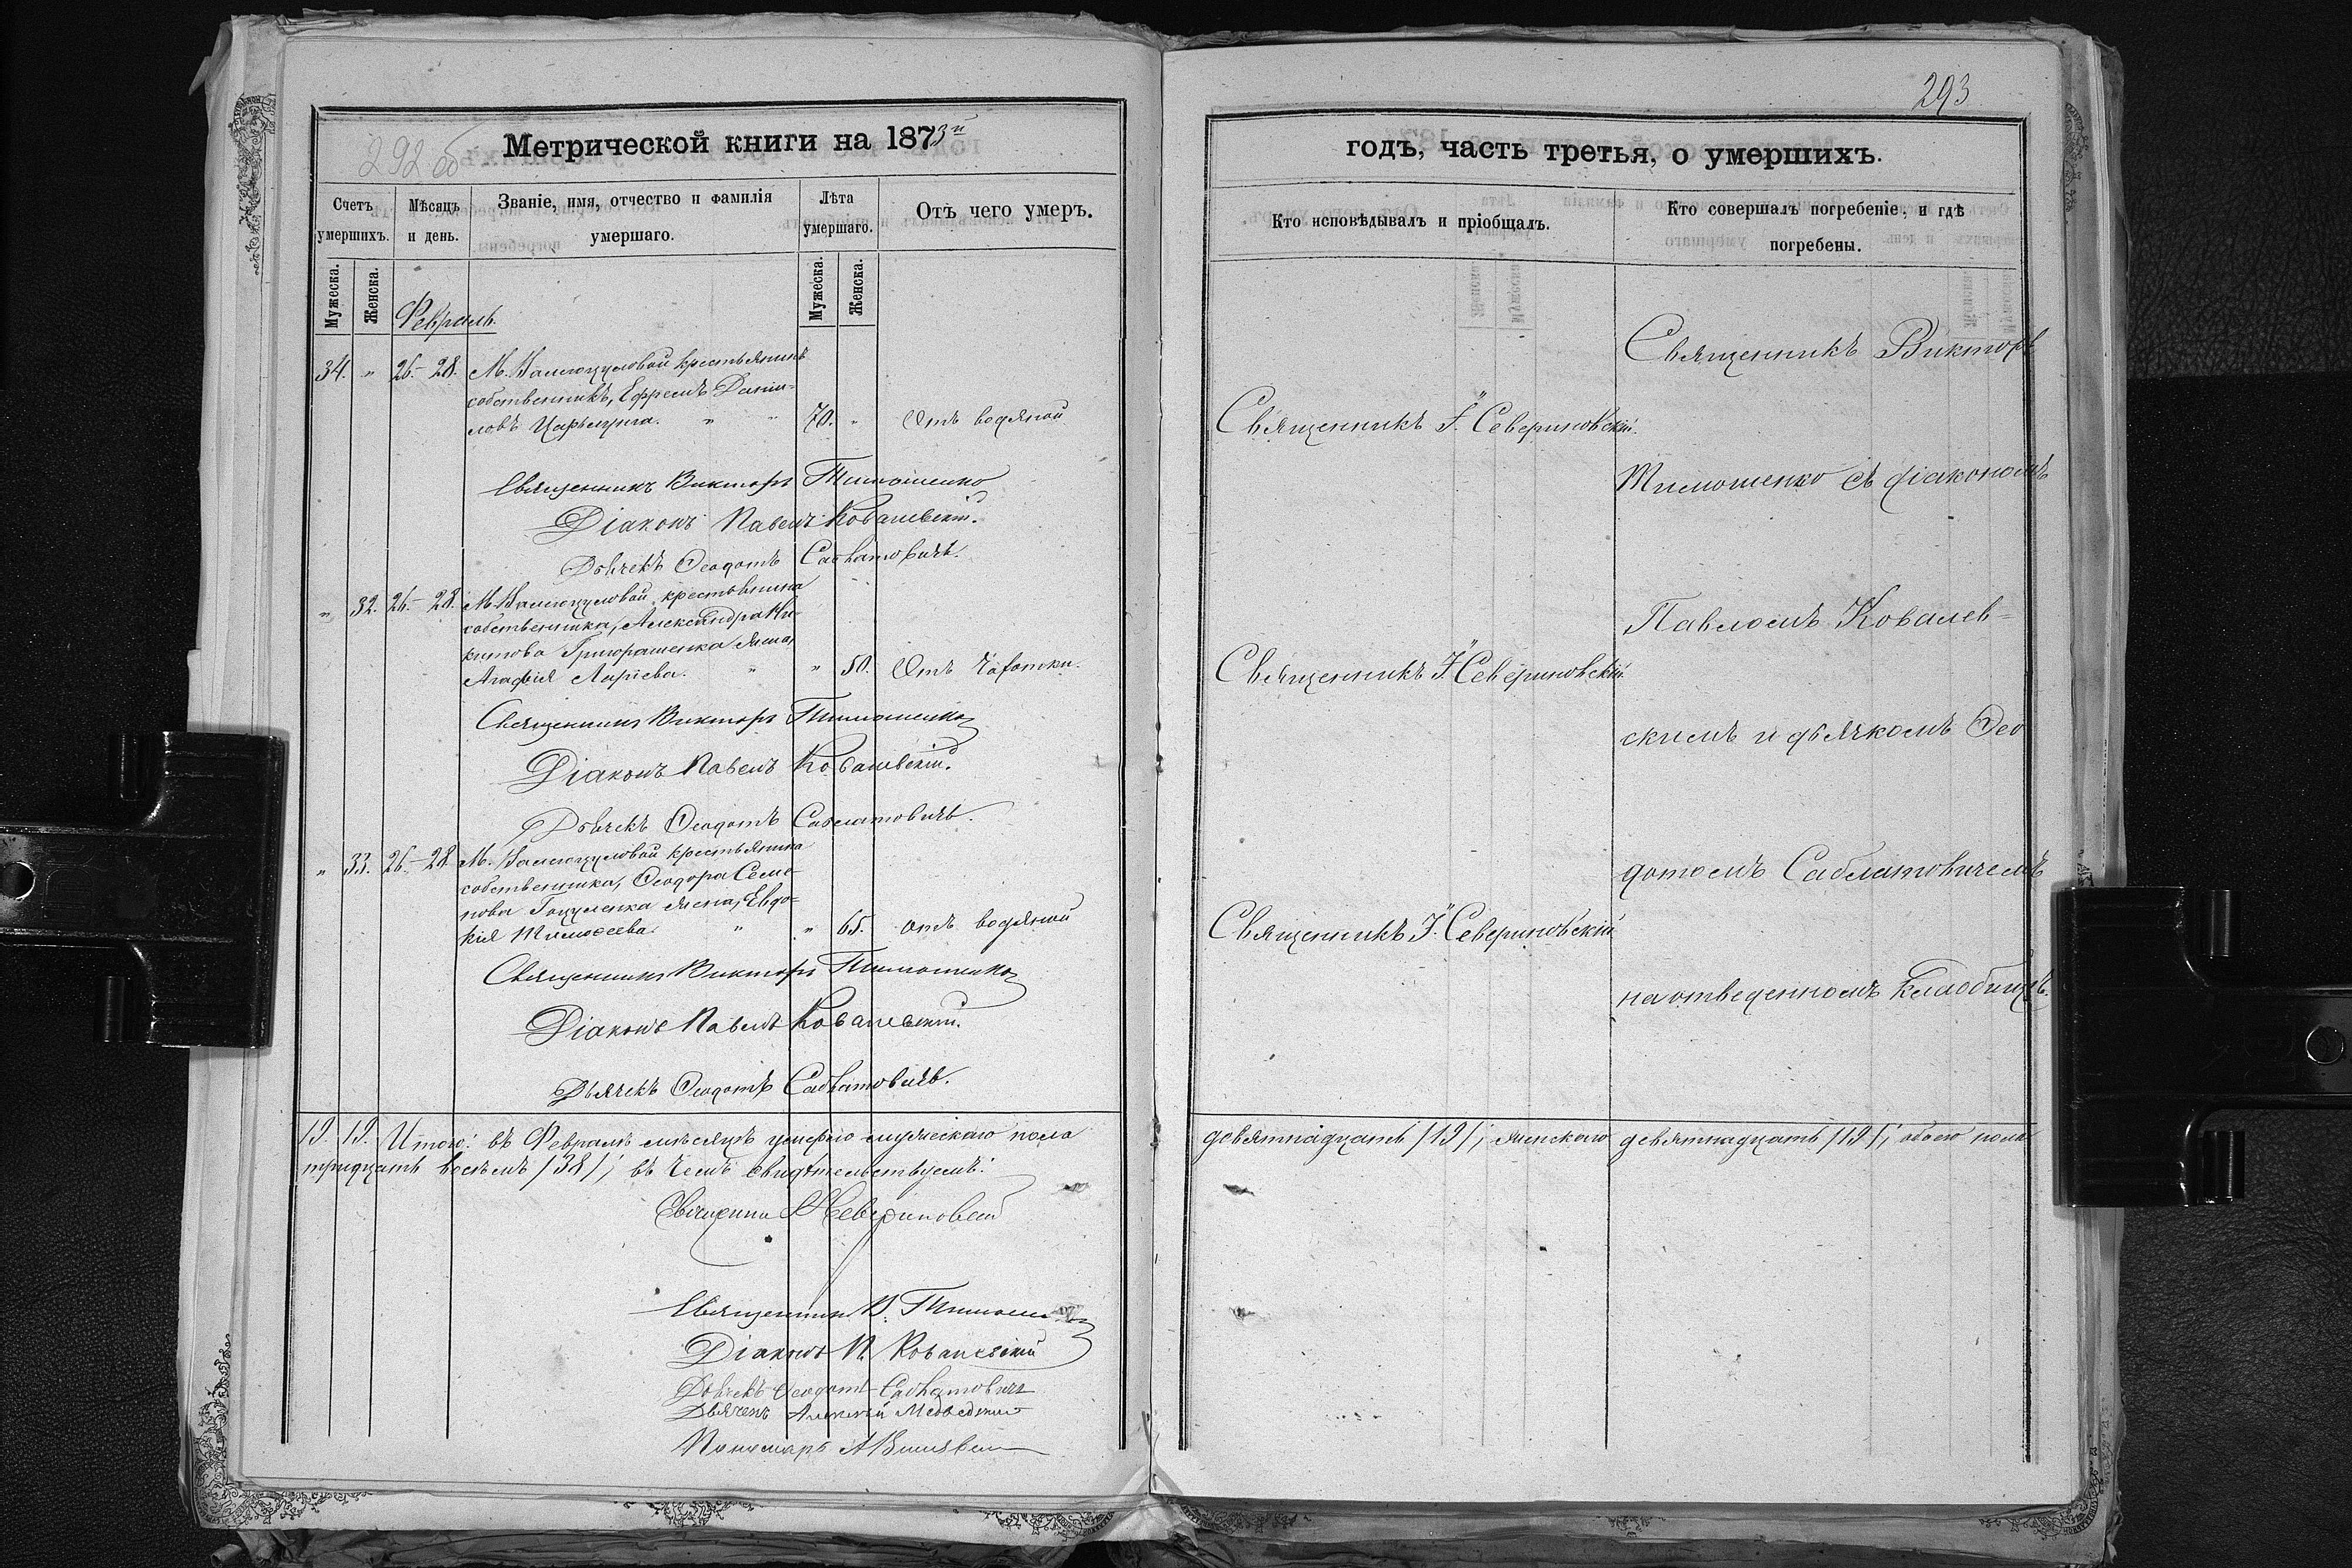 292 об
Метрической книги на 1873й
Счетъ умершихъ.
Мѣсяцъ и день.
Званіе, имя, отчество и фамилія умершаго.
Лѣта умершаго.
Отъ чего умеръ.
Мужеска.
Женска.
Мужеска.
Женска.
Февраль
34. " 26.- 28. М. крестьянинъ
собственникъ, Ефремъ Данiи-
ловъ " " 70. " Отъ водяной
Священникъ Викторъ Тимошенко
Діаконъ Павелъ Ковалевскій.
Дьячекъ Ѳеодотъ Савлатовичъ.
" 32. 26.- 28. М. крестьянина
собственника, Александра Ни-
китова Григорашенка жена,
Агафія " " 50. Отъ чахотки.
Священникъ Викторъ Тимошенко
Діаконъ Павелъ Ковалевскій.
Дьячекъ Ѳеодотъ Савлатовичъ.
" 33. 26.- 28. М. крестьянина
собственника, Ѳеодора Семе-
нова Гоцуленка жена, Евдо-
кія Тимоѳеева. " " 65. Отъ водяной
Священникъ Викторъ Тимошенко
Діаконъ Павелъ Ковалевскій.
Дьячекъ Ѳеодотъ Савлатовичъ.
19. 19. Итого: въ Февралѣ мѣсяцѣ умерло мужескаго пола
тридцать восемь /38/; въ чемъ свидѣтельствуемъ:
Священникъ Севериновскій
Священникъ В. Тимошенко
Діаконъ П. Ковалевскій
Дьячекъ Ѳеодотъ Савлатовичъ
Дьячекъ Алексѣй
Пономарь А
293
годъ, часть третья, о умершихъ.
Кто исповѣдывалъ и пріобщалъ.
Кто совершалъ погребеніе, и гдѣ
погребены.
Священникъ Викторъ
Священникъ І. Севериновскій.
Тимошенко съ діакономъ
Павломъ Ковалев-
Священникъ І. Севериновскій.
скимъ и дьячкомъ Ѳео
дотомъ Савлатовичемъ
Священникъ І. Севериновскій
на отведенномъ кладбищѣ.
девятнадцать /19/; женскаго девятнадцать /19/; обоего пола